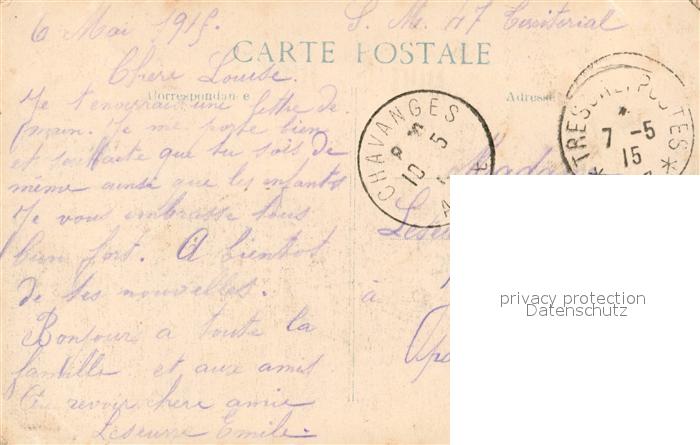 6 Mai 1915 S. M. 47 Territorial
CARTE POSTALE
Chère Louise.
Correspondance Adresse
Je t'enverrai une lettre de
main. Je me porte bien
et souhaite que tu sois de
même ainsi que les enfants
Je vous embrasse tous
bien fort. A bientot
de tes nouvelles.
Bonjour à toute la
famille et aux amis
Au revoir chere amie
Leseurre Emile
CHAVANGES
10 5
TRESOR ET POSTES
7 -5
15
Mada
Leseu
à
privacy protection
Datenschutz